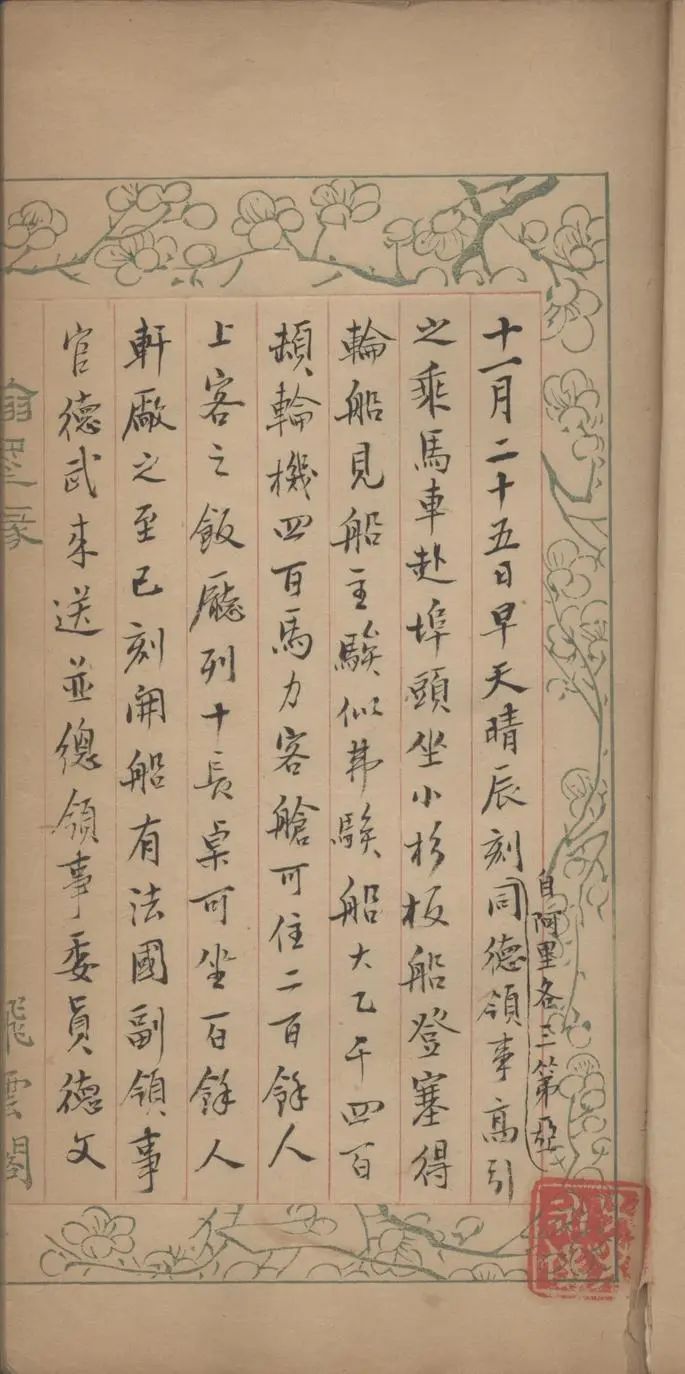 十一月二十五日早天晴辰刻同德領事高引
自阿里各三第亞
之乘馬車赴埠頭坐小杉板船登塞得
輪船見船主駿似茀駿船大乙千四百
頓輪機四百馬力客艙可住二百餘人
上客之飯廳列十長桌可坐百餘人
軒厰之至已刻開船有法國副領事
官德武來送並總領事委員德文
翰墨緣
飛雲閣